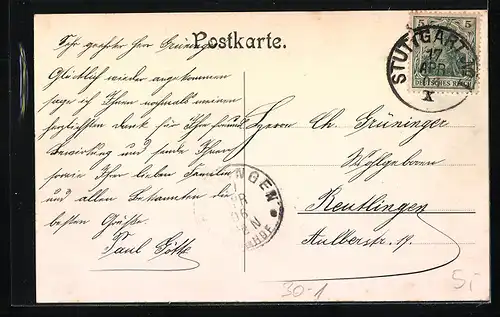 Postkarte.
Sehr geehrter Herr Grüninger
Glücklich wieder angekommen
sage ich Ihnen nochmals meinen
herzlichsten Dank für Ihre freundl.
Bewirtung und sende Ihnen
sowie Ihrer lieben Familie
und allen Bekannten die
besten Grüße.
Paul
5 5
DEUTSCHES REICH
STUTTGART
17
APR
X
Herrn Ch. Grüninger
Wohlgeboren
Reutlingen
Aulberstr. 17.
NGEN
06
N
HOF
30-1
5,-